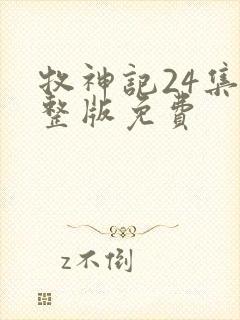 牧神記24集
整版免費
z不倒